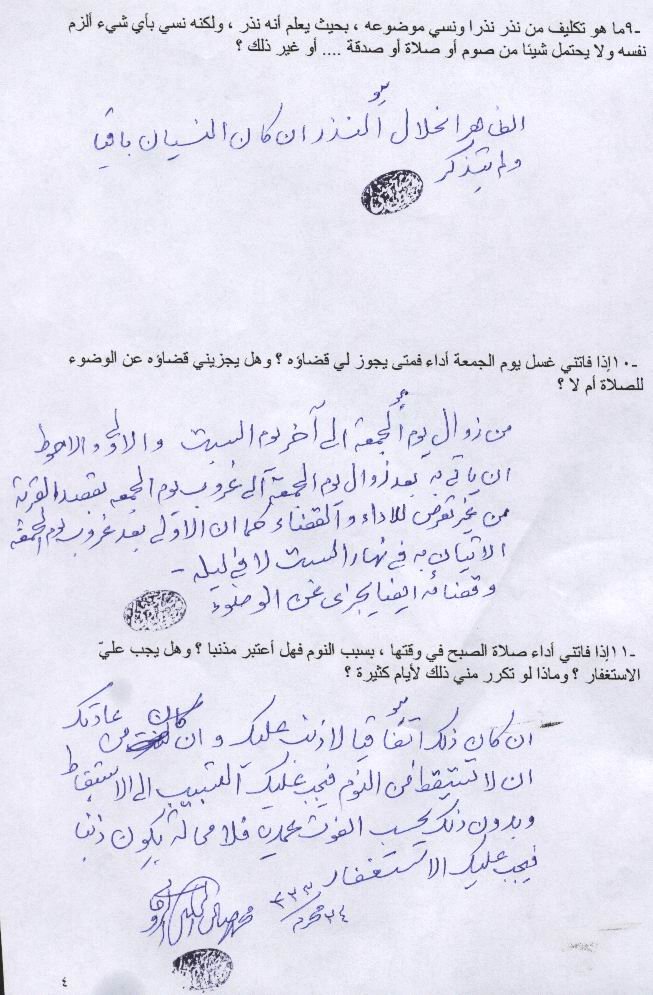 ٩- ما هو تكليف من نذر نذرا ونسي موضوعه ، بحيث يعلم أنه نذر ، ولكنه نسي بأي شيء ألزم
نفسه ولا يحتمل شيئا من صوم أو صلاة أو صدقة .... أو غير ذلك ؟
الظاهر انحلال النذر ان كان النسيان باقيا
ولم يتذكر
١٠- إذا فاتتني غسل يوم الجمعة أداء فمتى يجوز لي قضاؤه ؟ وهل يجزيني قضاؤه عن الوضوء
للصلاة أم لا ؟
من زوال يوم الجمعة الى آخر يوم السبت والاولى والاحوط
ان ياتي به بعد زوال يوم الجمعة الى غروب يوم الجمعه بقصد القربة
من غير تعرض للاداء والقضاء كما ان الاولى بعد غروب يوم الجمعة
الاتيان به في نهار السبت لا في ليله -
وقضائه ايضا يجزى عن الوضوء
١١- إذا فاتتني أداء صلاة الصبح في وقتها ، بسبب النوم فهل أعتبر مذنبا ؟ وهل يجب عليّ
الاستغفار ؟ وماذا لو تكرر مني ذلك لأيام كثيرة ؟
ان كان ذلك اتفاقيا لا ذنب عليك وان كان من عادتك
ان لا تستيقظ من النوم فيجب عليك التسبيب الى الاستيقاظ
وبدون ذلك يحسب الفوت عمديا فلا محالة يكون ذنبا
فيجب عليك الاستغفار
٢٤ محرم
٤